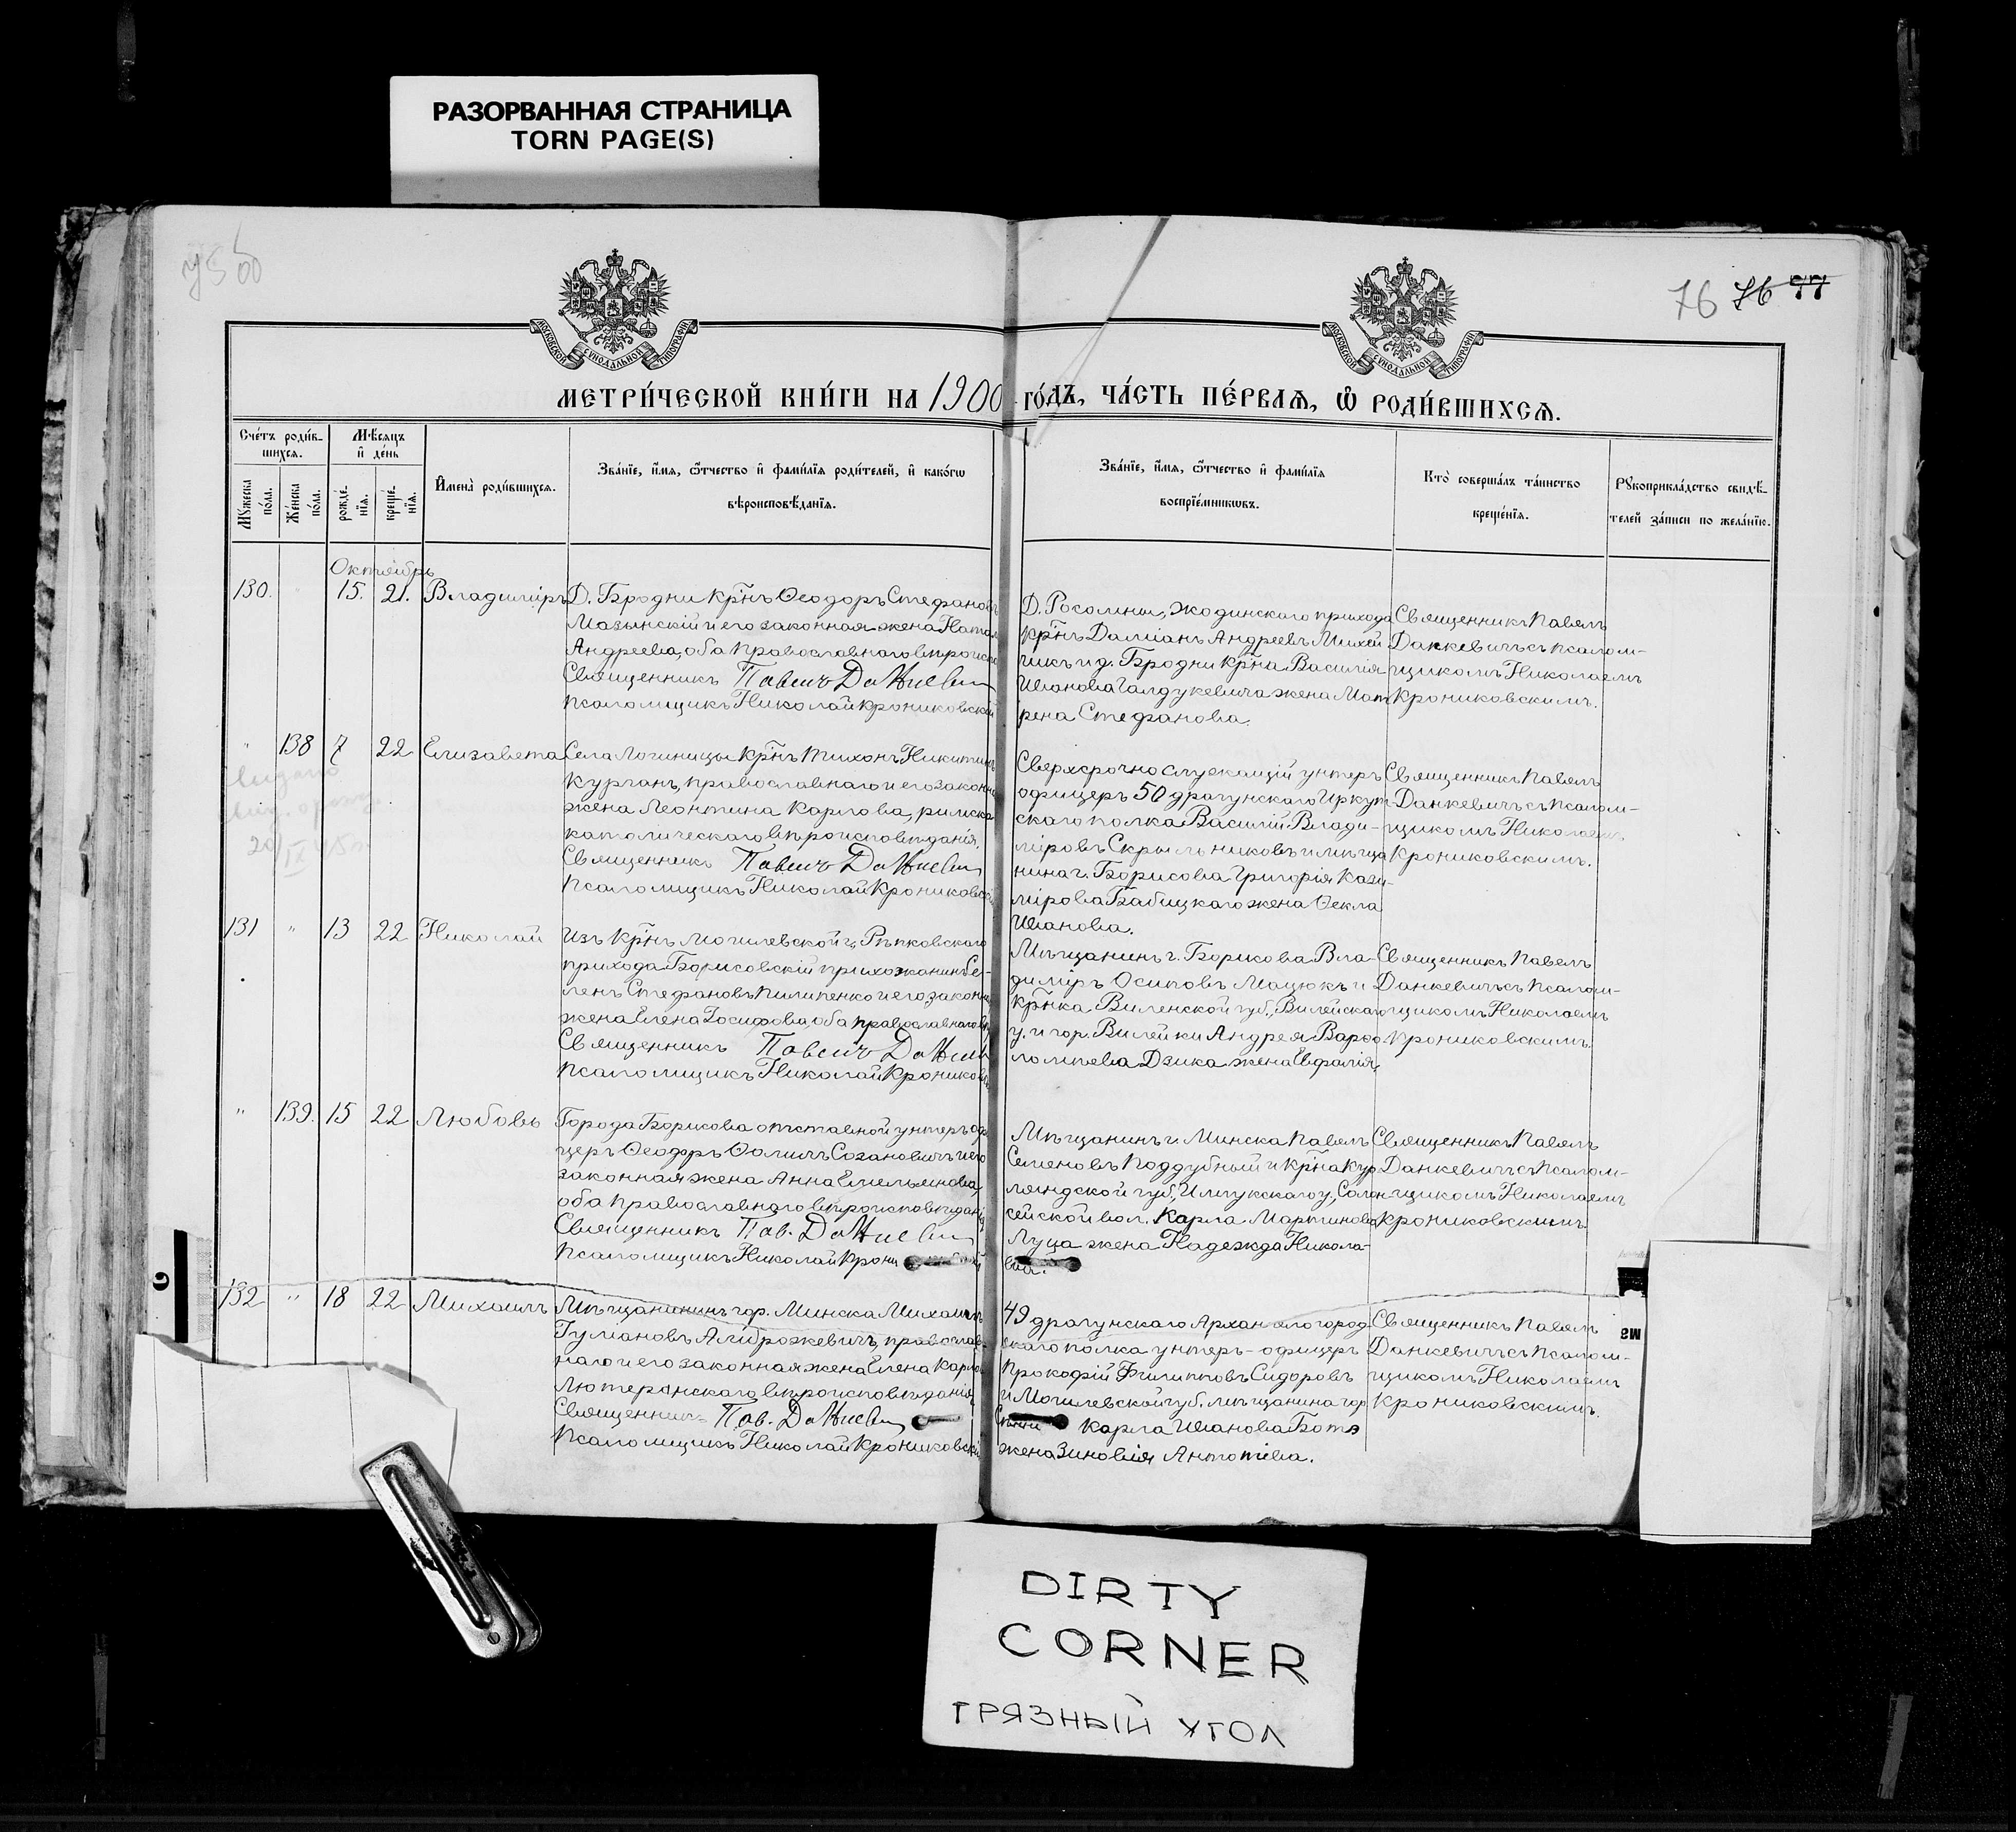 РАЗОРВАННАЯ СТРАНИЦА
TORN PAGE(S)
76 76 77
МОСКОВСКОЙ СѴНОДАЛЬНОЙ ТИПОГРАФІИ
МОСКОВСКОЙ СѴНОДАЛЬНОЙ ТИПОГРАФІИ
МЕТРИ́ЧЕСКОЙ КНИ́ГИ НА 1900 ГО́ДЪ, ЧА́СТЬ ПЕ́РВАѦ, Ѽ РОДИ́ВШИХСѦ.
Сче́тъ роди́в-
шихсѧ.
Мꙋ́жеска по́ла.
Же́нска по́ла.
Мѣ́сѧцъ
и҆ де́нь
рожде́-
нїѧ.
креще́-
нїѧ.
И҆мена̀ роди́вшихсѧ.
Зва́нїе, и҆́мѧ, ѻ҆́тчество и҆ фами́лїѧ роди́телей, и҆ како́гѡ
вѣроисповѣ́данїѧ.
Зва́нїе, и҆́мѧ, ѻ҆́тчество и҆ фами́лїѧ
воспрїе́мникѡвъ.
Кто̀ соверша́лъ та́инство
креще́нїѧ.
Рꙋкоприкла́дство свидѣ́-
телей за́писи по жела́нїю.
Октябрь
130. " 15. 21. Владиміръ
Д. Бродни кр-нъ Ѳеодоръ Стефановъ
Мазынскій и его законная жена Натал
Андреева, оба православнаго вѣроиспо
Священникъ Павелъ Данкевич
Псаломщикъ Николай Крониковскій
Д. Росошны, Жодинскаго прихода
кр-нъ Даміанъ Андреевъ Михай
чикъ и д. Бродни кр-на Василія
Иванова Галдукевича жена Мат
рена Стефанова.
Священникъ Павелъ
Данкевичъ съ псалом-
щикомъ Николаемъ
Крониковскимъ.
" 138 7 22 Елизавета
Села Логиницы кр-нъ Тихонъ Никитинъ
Курганъ, православнаго и его законн
жена Леонтина Карлова, римско
католическаго вѣроисповѣданія.
Священникъ Павелъ Данкевич
Псаломщикъ Николай Крониковскі
Сверхсрочно служащій унтеръ
офицеръ 50 драгунскаго Иркут-
скаго полка Василій Влади-
міровъ Скрыльниковъ и мѣща
нина г. Борисова Григорія Кази-
мірова Бабицкаго жена Ѳекла
Иванова.
Священникъ Павелъ
Данкевичъ съ псалом-
щикомъ Николаемъ
Крониковскимъ.
131 " 13 22 Николай
Изъ кр-нъ Могилевской г., Рѣпковскаго
прихода Борисовскій прихожанинъ Се-
менъ Стефановъ Пилипенко и его законн
жена Елена Іосифова, оба православнаго вѣ
Священникъ Павелъ Данкев
Псаломщикъ Николай Крониковс
Мѣщанинъ г. Борисова Вла-
диміръ Осиповъ Мацюкъ и
кр-нка Виленской губ., Вилейскаго
у. и гор. Вилейки Андрея Варѳо
ломѣева Дзика жена Евфалія.
Священникъ Павелъ
Данкевичъ съ псалом-
щикомъ Николаемъ
Крониковскимъ.
" 139. 15 22 Любовь
Города Борисова отставной унтеръ оф
церъ Ѳеодоръ Ѳоминъ Созановичъ и его
законная жена Анна Емельянова,
оба православнаго вѣроисповѣданія
Священникъ Пав. Данкевич
Псаломщикъ Николай Крони
Мѣщанинъ г. Минска Павелъ
Семеновъ Поддубный и кр-на Кур
ляндской губ., Иллукскаго у., Солон-
сейской вол. Карла Мартинова
Луца жена Надежда Никола-
ева.
Священникъ Павелъ
Данкевичъ съ псалом-
щикомъ Николаемъ
Крониковскимъ.
132 " 18 22 Михаилъ
Мѣщанинъ гор. Минска Михаилъ
Гумановъ Амброжевичъ, православ-
наго и его законная жена Елена Карло
Лютеранскаго вѣроисповѣданія
Священникъ Пав. Данкевич
Псаломщикъ Николай Крониковскі
49 драгунскаго Архангелогород
скаго полка унтеръ-офицеръ
Прокофій Филипповъ Сидоровъ
и Могилевской губ. мѣщанина гор
Карла Иванова Бота
жена Зиновія Антонова.
Священникъ Павелъ
Данкевичъ съ псалом-
щикомъ Николаемъ
Крониковскимъ.
DIRTY
CORNER
ГРЯЗНЫЙ УГОЛ